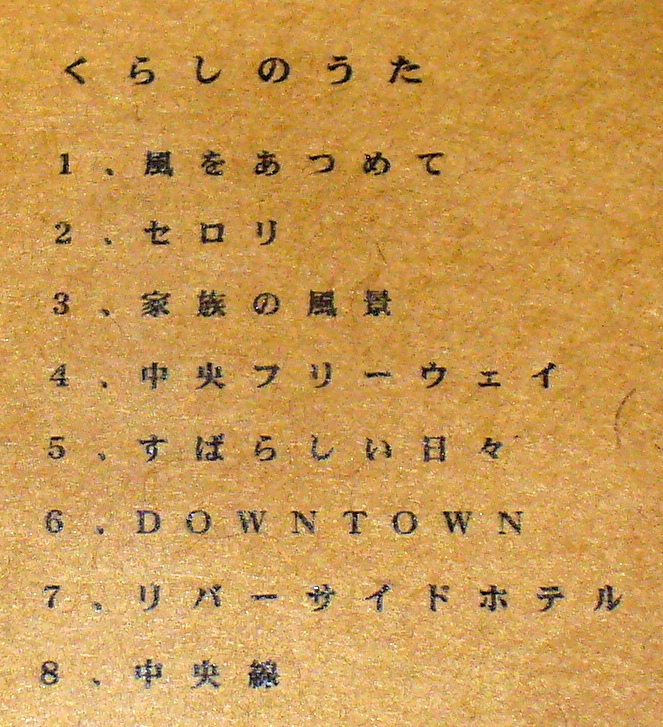 くらしのうた
1、風をあつめて
2、セロリ
3、家族の風景
4、中央フリーウェイ
5、すばらしい日々
6、DOWNTOWN
7、リバーサイドホテル
8、中央線